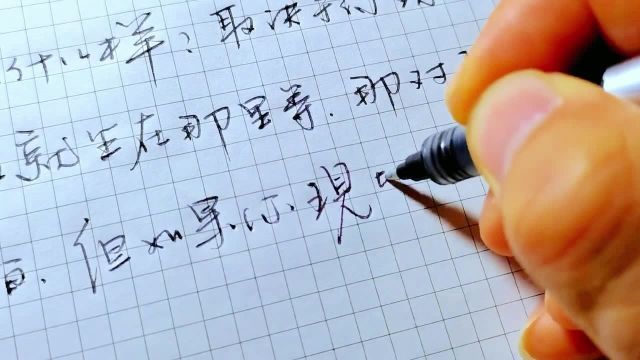 什么样?取决于你
就坐在那里等.那对
但如果你现